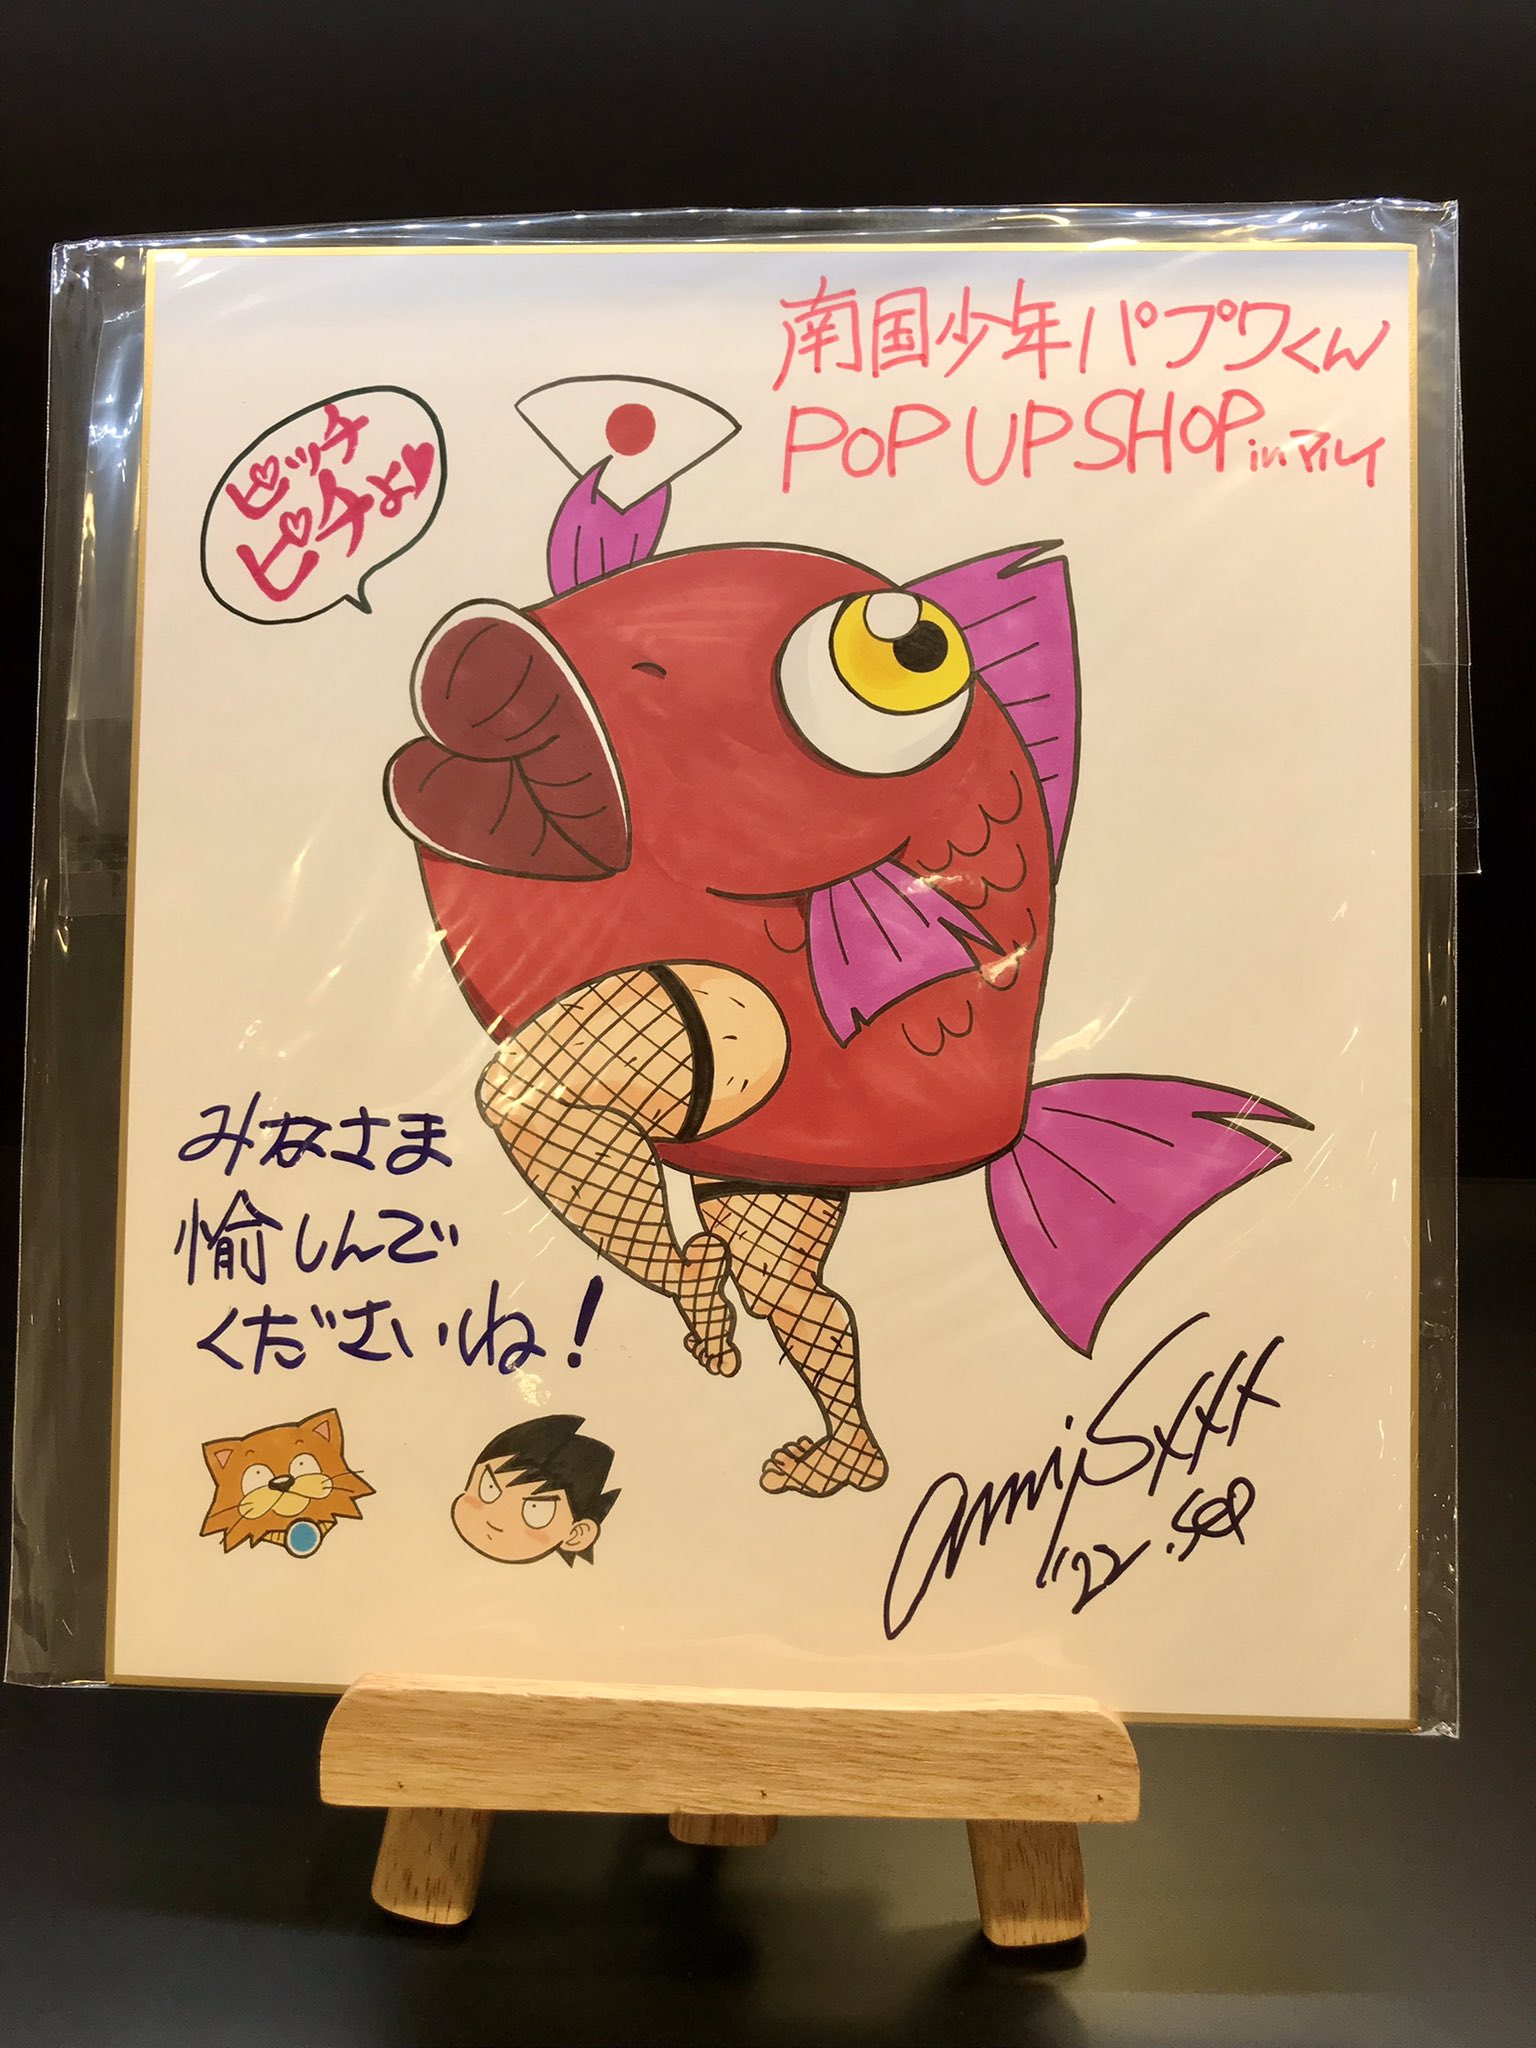 南国少年パプワくん
POP UP SHOP in マルイ
ピッチ
ピチよ♥
みなさま
愉しんで
くださいね!
'22.SEP